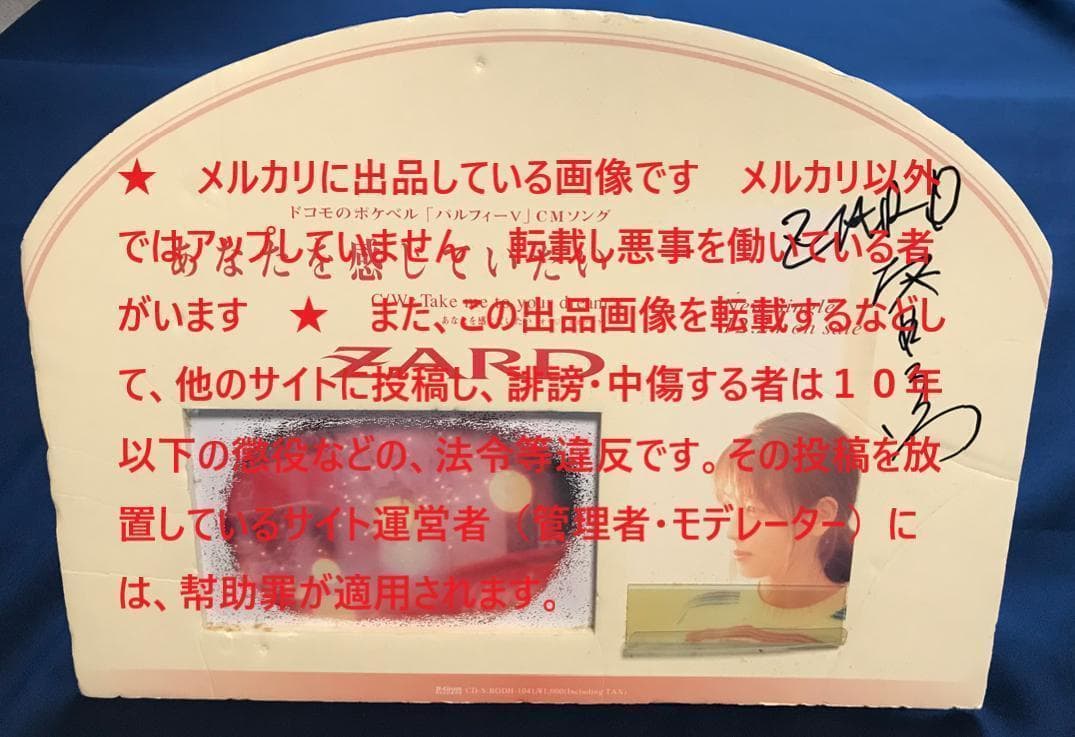 ★　メルカリに出品している画像です　メルカリ以外
ドコモのポケベル「パルフィーV」CMソング
ZARD
ではアップしていません　転載し悪事を働いている者
あなたを感じていたい
坂井泉水
C/W: Take me to your dream
New Single
がいます　★　また、この出品画像を転載するなどし
on sale
ZARD
て、他のサイトに投稿し、誹謗・中傷する者は１０年
以下の懲役などの、法令等違反です。その投稿を放
置しているサイト運営者（管理者・モデレーター）に
は、幇助罪が適用されます。
CD-S:BGDH-1041/¥1,000(Including TAX)